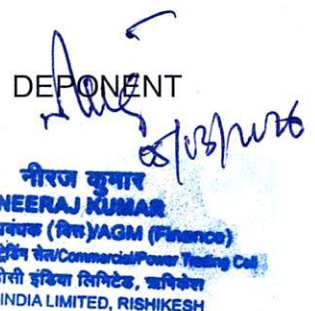 DEPONENT
नीरज कुमार
NEERAJ KUMAR
प्रबंधक (वित्त)/AGM (Finance)
ट्रेडिंग सेल/Commercial/Power Trading Cell
इंडिया लिमिटेड, ऋषिकेश
INDIA LIMITED, RISHIKESH